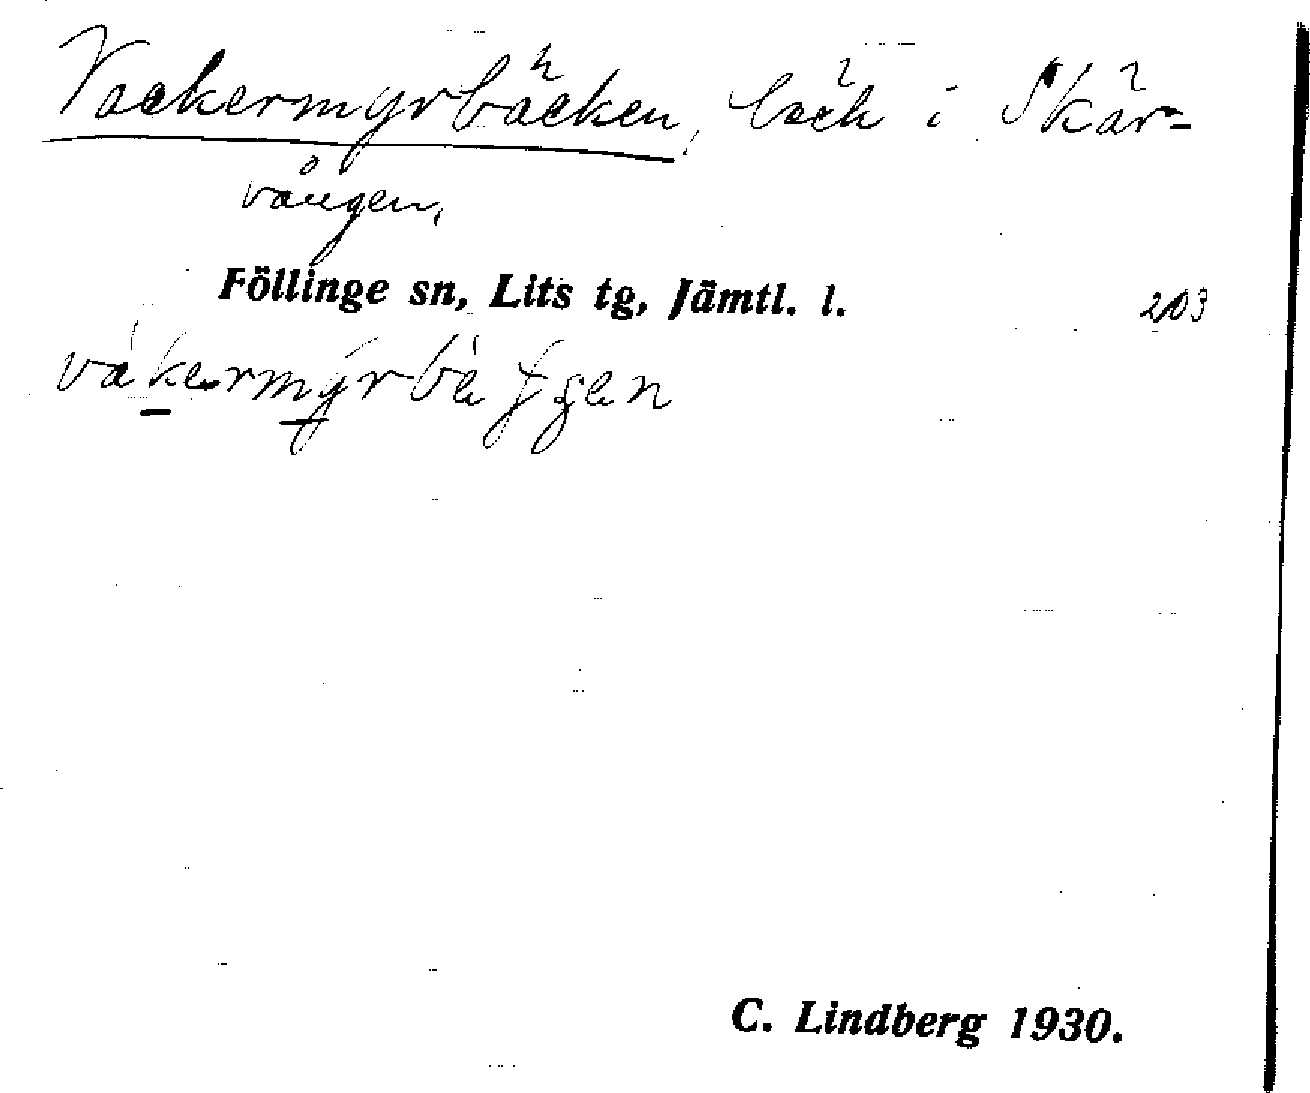 Vackermyrbäcken, bäck i Skär-
vången,
Föllinge sn, Lits tg, Jämtl. l. 203
C. Lindberg 1930.